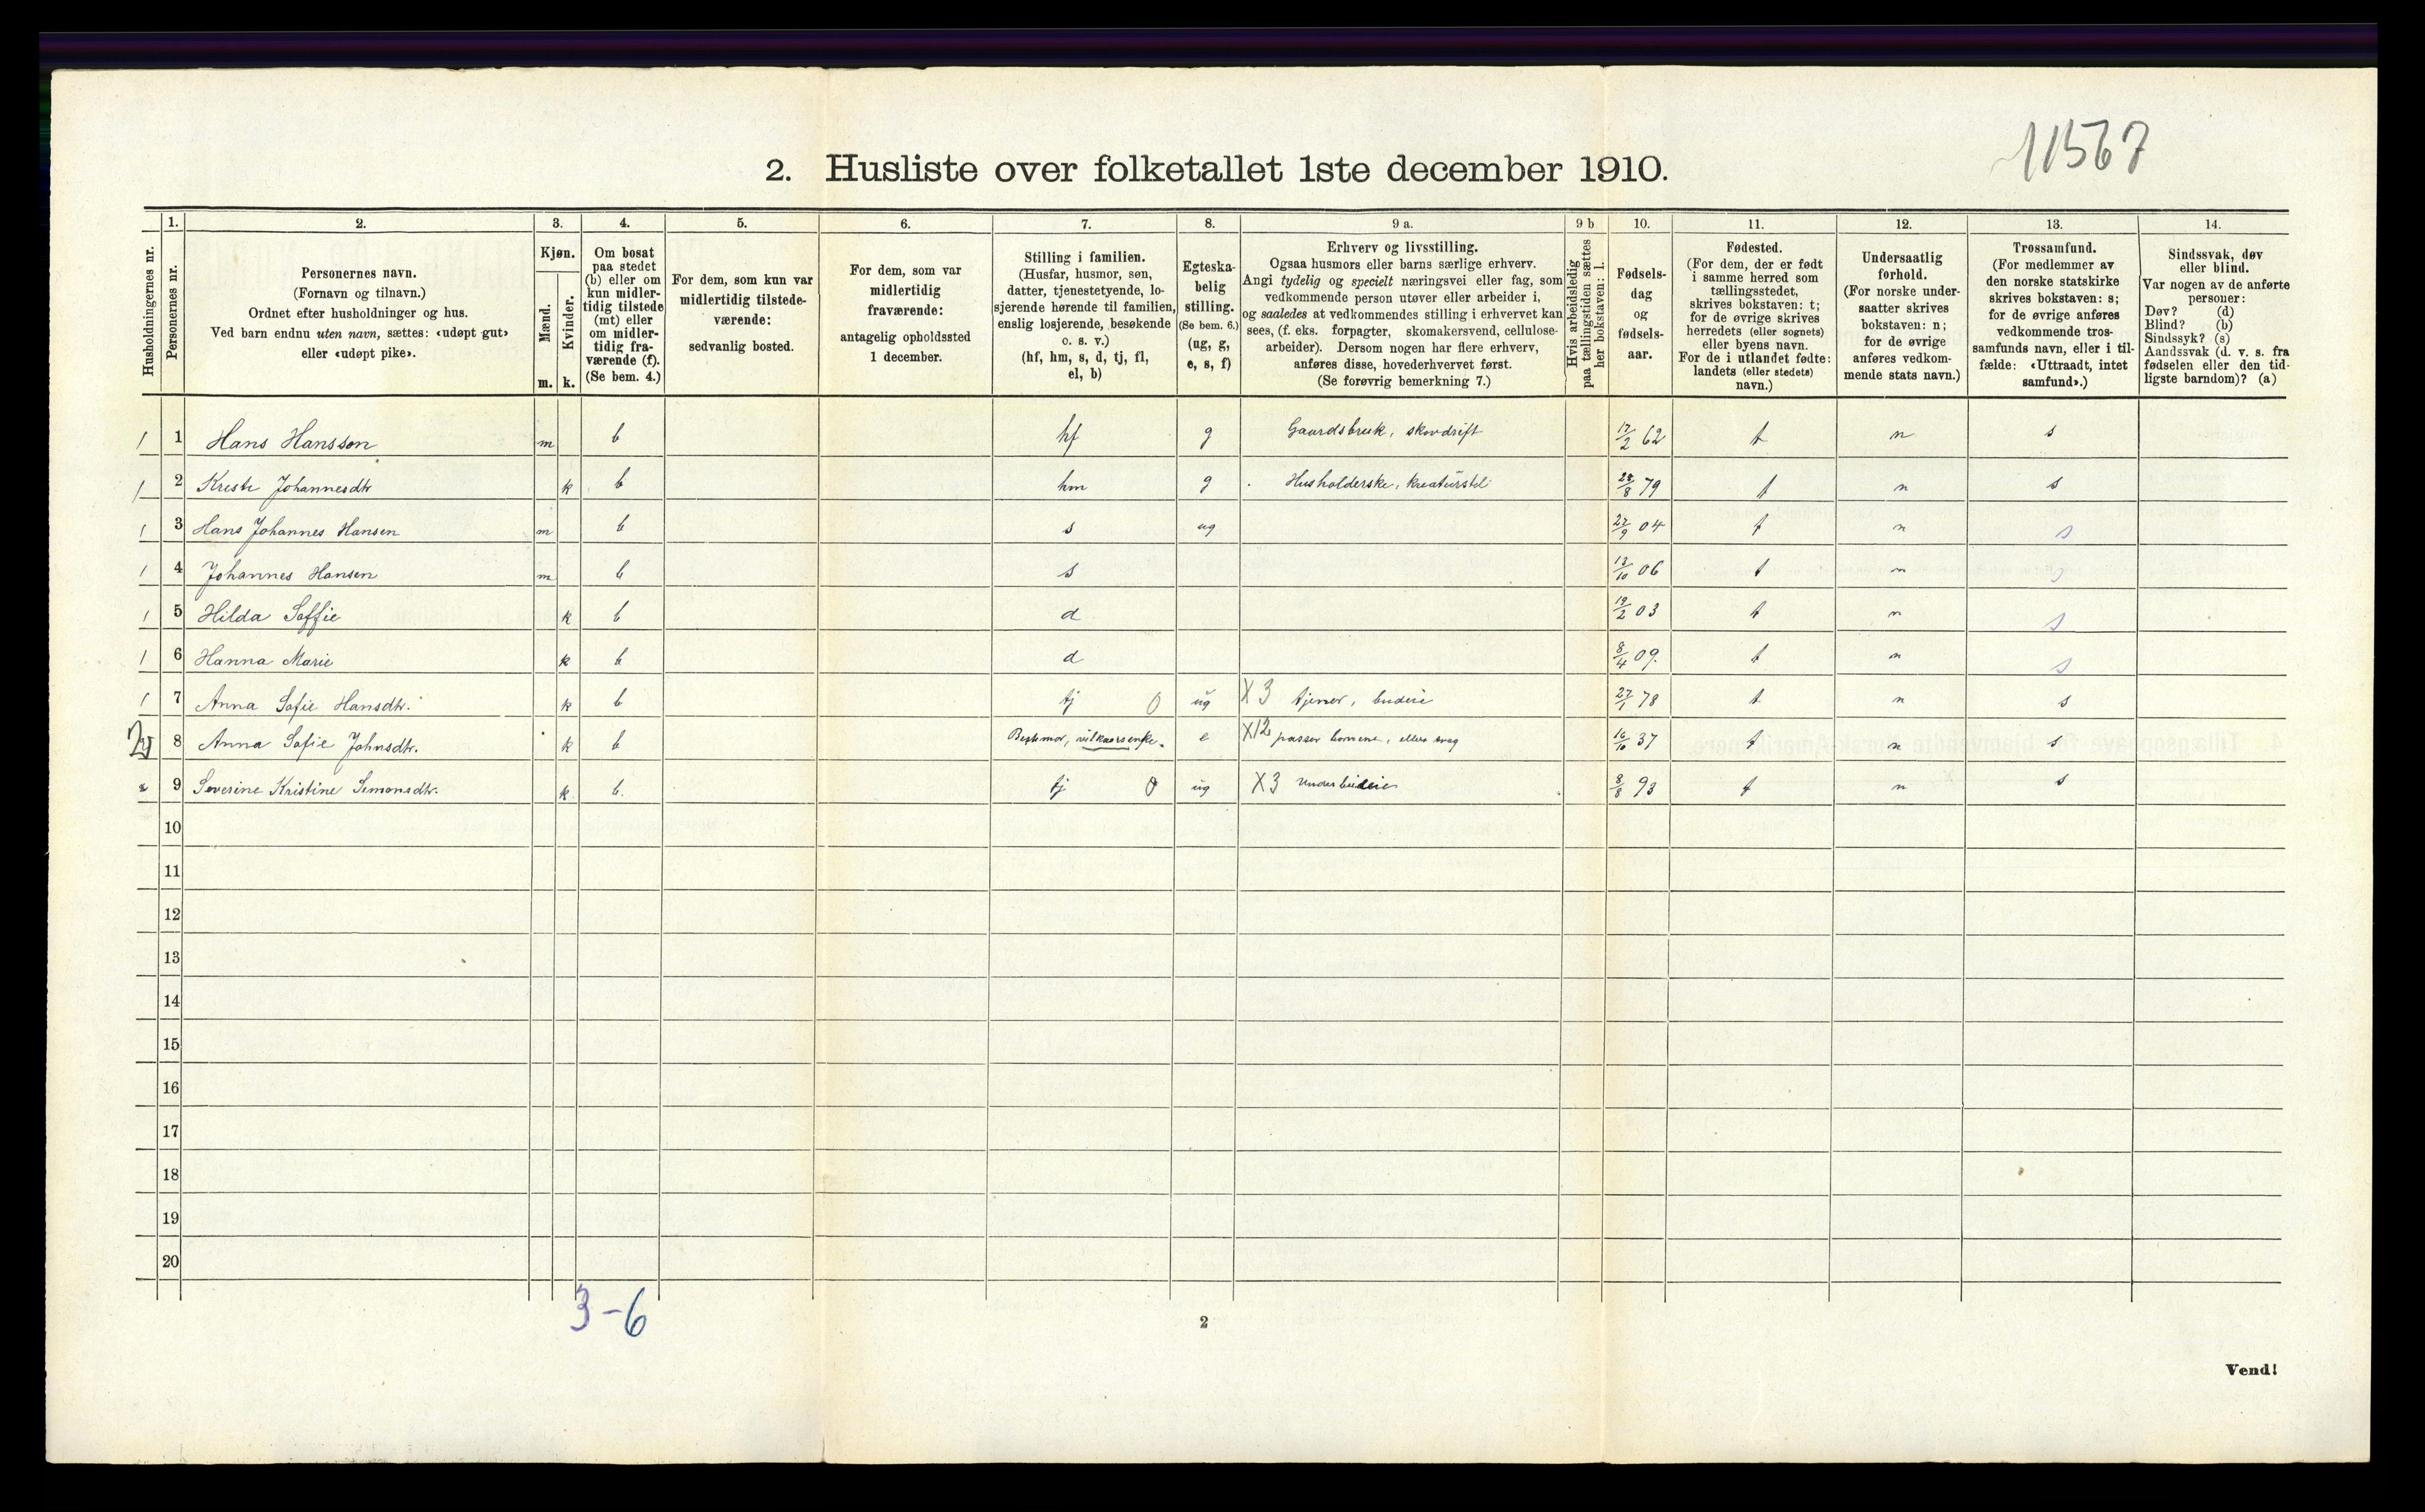 11567
2. Husliste over folketallet 1ste december 1910.
Husholdningernes nr.
1.
Personernes nr.
2.
Personernes navn.
(Fornavn og tilnavn.)
Ordnet efter husholdninger og hus.
Ved barn endnu uten navn, sættes: «udøpt gut»
eller «udøpt pike».
3.
Kjøn.
Mænd.
Kvinder.
m. k.
4.
Om bosat
paa stedet
(b) eller om
kun midler-
tidig tilstede
(mt) eller
om midler-
tidig fra-
værende (f).
(Se bem. 4.)
5.
For dem, som kun var
midlertidig tilstede-
værende:
sedvanlig bosted.
6.
For dem, som var
midlertidig
fraværende:
antagelig opholdssted
1 december.
7.
Stilling i familien.
(Husfar, husmor, søn,
datter, tjenestetyende, lo-
sjerende hørende til familien,
enslig losjerende, besøkende
o. s. v.)
(hf, hm, s, d, tj, fl,
el, b)
8.
Egteska-
belig
stilling.
(Se bem. 6.)
(ug, g,
e, s, f)
9 a.
Erhverv og livsstilling.
Ogsaa husmors eller barns særlige erhverv.
Angi tydelig og specielt næringsvei eller fag, som
vedkommende person utøver eller arbeider i,
og saaledes at vedkommendes stilling i erhvervet kan
sees, (f. eks. forpagter, skomakersvend, cellulose-
arbeider). Dersom nogen har flere erhverv,
anføres disse, hovederhvervet først.
(Se forøvrig bemerkning 7.)
9 b
Hvis arbeidsledig
paa tællingstiden sættes
her bokstaven: l.
10.
Fødsels-
dag
og
fødsels-
aar.
11.
Fødested.
(For dem, der er født
i samme herred som
tællingsstedet,
skrives bokstaven: t;
for de øvrige skrives
herredets (eller sognets)
eller byens navn.
For de i utlandet fødte:
landets (eller stedets)
navn.)
12.
Undersaatlig
forhold.
(For norske under-
saatter skrives
bokstaven: n;
for de øvrige
anføres vedkom-
mende stats navn.)
13.
Trossamfund.
(For medlemmer av
den norske statskirke
skrives bokstaven: s;
for de øvrige anføres
vedkommende tros-
samfunds navn, eller i til-
fælde: «Uttraadt, intet
samfund».)
14.
Sindssvak, døv
eller blind.
Var nogen av de anførte
personer:
Døv? (d)
Blind? (b)
Sindssyk? (s)
Aandssvak (d. v. s. fra
fødselen eller den tid-
ligste barndom)? (a)
1 1 Hans Hansson m b hf g Gaardsbruk, skovdrift 17/2 62 t n s
1 2 Kreste Johannesdtr k b hm g Husholderske, kreaturstel 28/8 79 t n s
1 3 Hans Johannes Hansen m b s ug 27/9 04 t n s
1 4 Johannes Hansen m b s 13/10 06 t n s
1 5 Hilda Soffie k b d 19/2 03 t n s
1 6 Hanna Marie k b d 8/4 09. t n s
1 7 Anna Sofie Hansdtr. k b tj 0 ug X3 tjener, budeie 27/1 78 t n s
8 Anna Sofie Johnsdtr. k b Bestmor, vilkaarsenke. e X12 passer børnene, ellers svag 16/10 37 t n s
2 9 Severine Kristine Simonsdtr. k b. tj 0 ug X3 underbudeie 8/8 93 t n s
10
11
12
13
14
15
16
17
18
19
20
3-6
2
Vend!